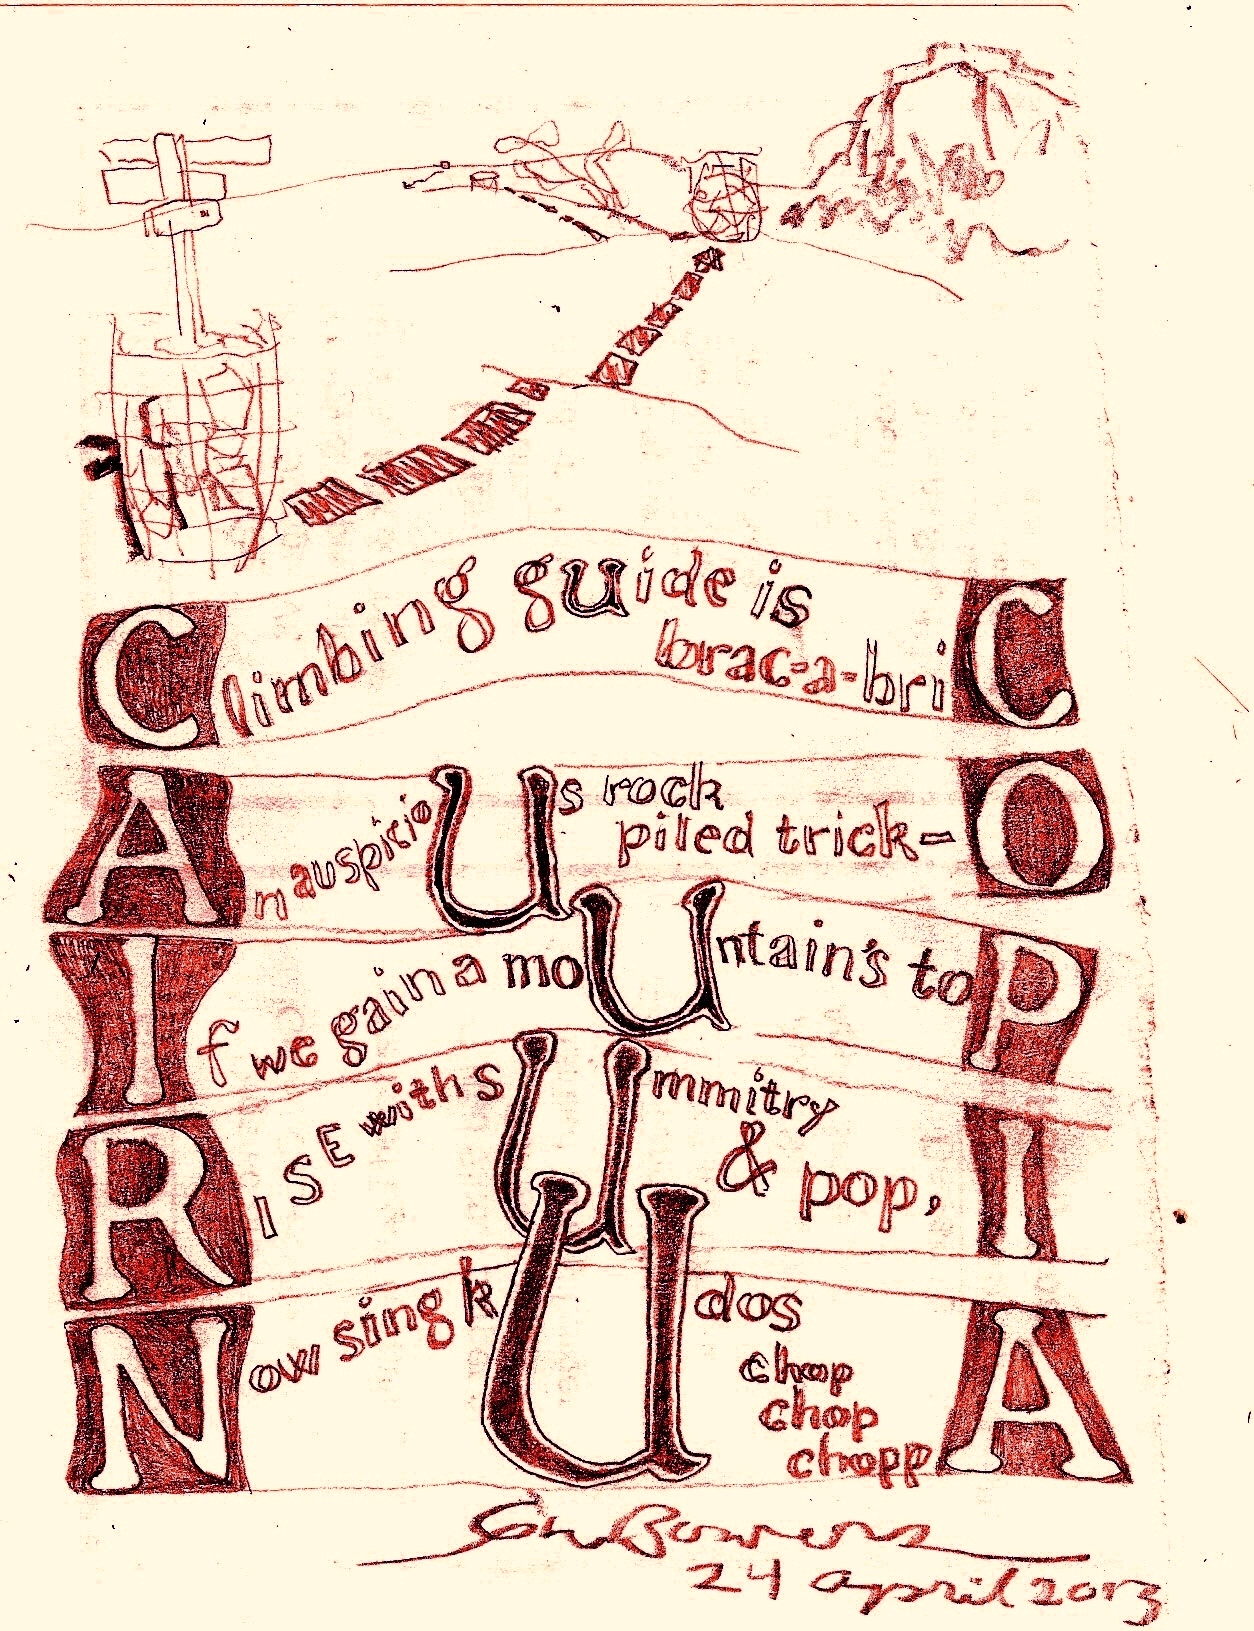 Climbing guide is
brac-a-briC
An auspicioUs rock
piled trick-O
If we gain a moUntain's toP
RISE with sUmmitry
& pop, I
Now sing kUdos
chop
chop
choppA
24 april 2013